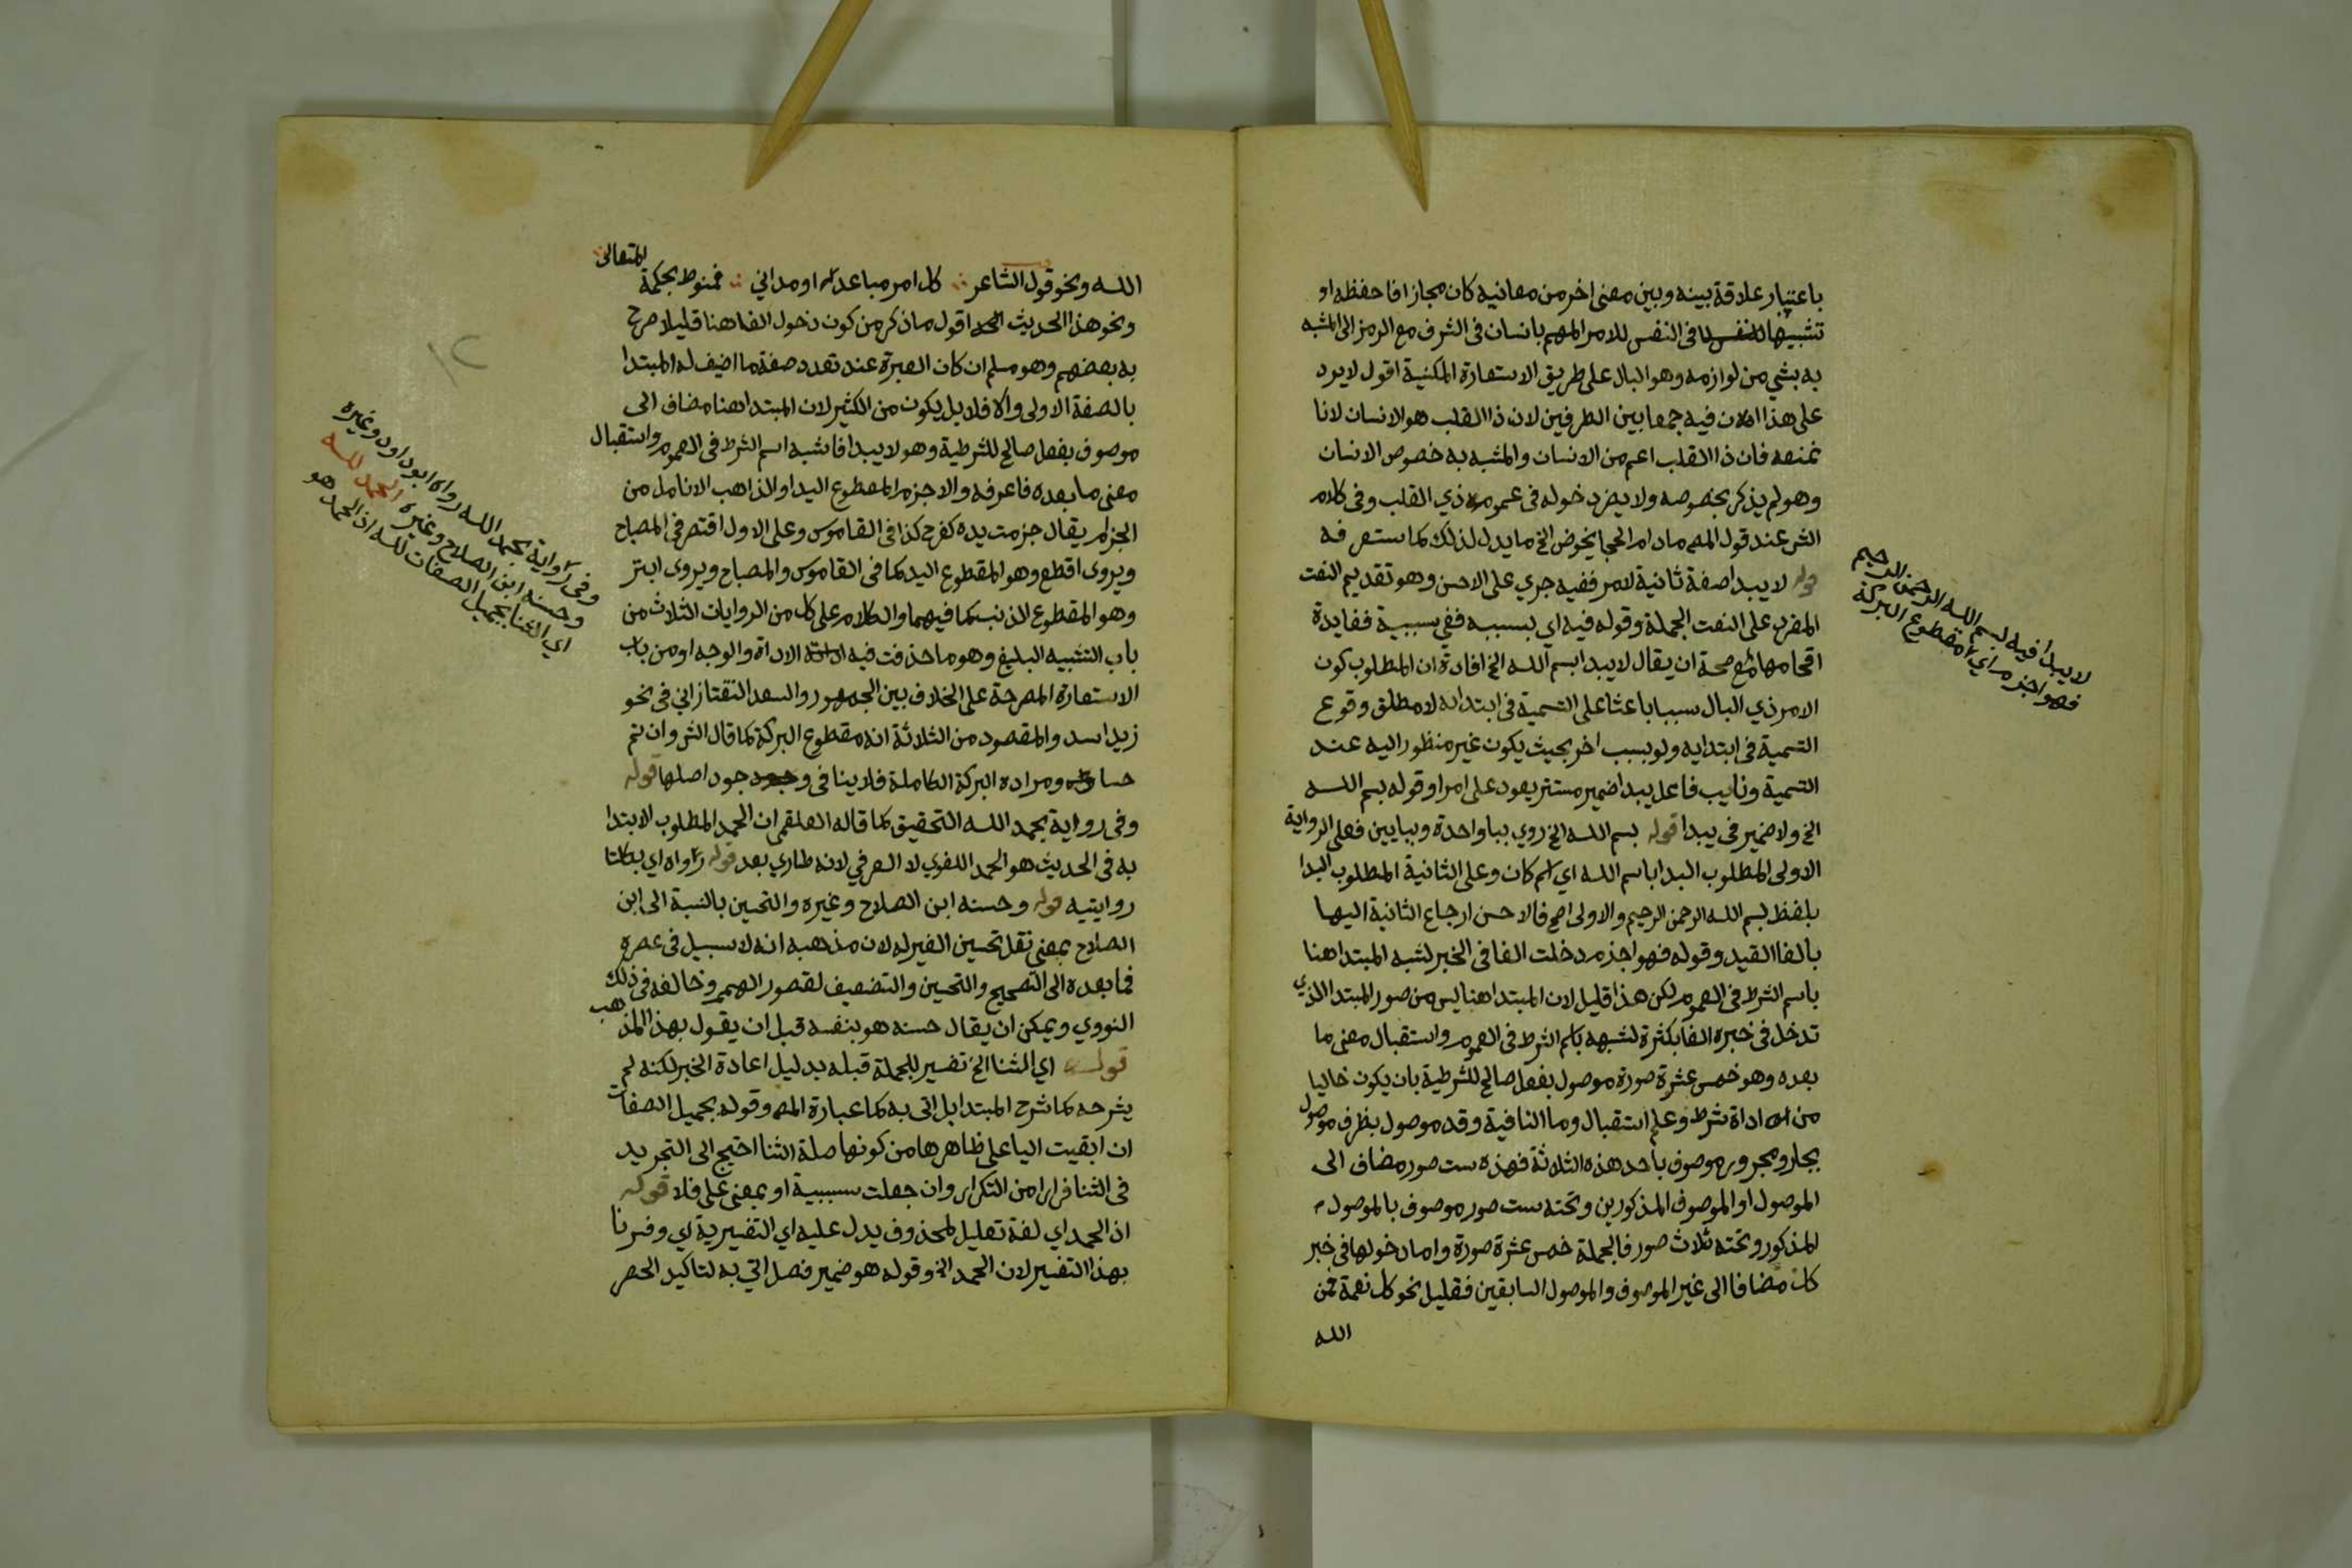 باعتبار علاقة بينه وبين معنى اخر من معانيه كان مجازا فاحفظه او
تشبيها في النفس للامر المهم بانسان في الشرف مع الرمز الى المشبه
به بشي من لوازمه وهو البال على طريق الاستعارة المكنية اقول لا يرد
على هذا ان فيه جمعا بين الطرفين لان ذا القلب هو الانسان لانا
نمنعه فان ذا القلب اعم من الانسان والمشبه به خصوص الانسان
وهو لم يذكر بخصوصه ولا يضر دخوله في عموم ذي القلب وفي كلام
الش عند قول المص مادام الحجا يخوض الخ ما يدل لذلك كما ستعرفه
قوله لا يبدا صفة ثانية لامر ففيه جري على الاحسن وهو تقديم النعت
المفرد على النعت الجملة وقوله فيه اي بسببه ففي سببية ففايدة
اقحامها مع صحة ان يقال لا يبدا بسم الله الخ افادة ان المطلوب كون
الامر ذي البال سببا باعثا على التسمية في ابتدايه لا مطلق وقوع
التسمية في ابتدايه ولو بسبب اخر بحيث يكون غير منظور اليه عند
التسمية ونايب فاعل يبدا ضمير مستتر يعود على امر او قوله بسم الله
الخ ولا ضمير في يبدا قوله بسم الله الخ روي ببا واحدة وببايين فعلى الرواية
الاولى المطلوب البدا باسم الله اي اسم كان وعلى الثانية المطلوب البدا
بلفظ بسم الله الرحمن الرحيم والاولى اصح فالاحسن ارجاع الثانية اليها
بالغا القيد وقوله فهو اجذم دخلت الفا في الخبر لشبه المبتدا هنا
باسم الشرط في العموم لكن هذا قليل لان المبتدا هنا ليس من صور المبتدا الذي
تدخل في خبره الفا بكثرة لشبهه باسم الشرط في العموم واستقبال معنى ما
بعده وهو خمس عشرة صورة موصول بفعل صالح للشرطية بان يكون خاليا
من اداة شرط وعلم استقبال وما النافية وقد موصول بظرف موصول
بجار ومجرور موصوف باحد هذه الثلاثة فهذه ست صور مضاف الى
الموصول او الموصوف المذكورين وتحته ست صور موصوف بالموصول
المذكور وتحته ثلاث صور فالجملة خمس عشرة صورة واما دخولها في خبر
كل مضافا الى غير الموصوف والموصول السابقين فقليل نحو كل نعمة فمن
الله
لا يبدا فيه ببسم الله الرحمن الرحيم
فهو اجذم اي مقطوع البركة
الله ونحو قول الشاعر كل امر مباعد او مداني فمنوط بحكمة المتعالي
ونحو هذا الحديث اقول ما ذكر من كون دخول الفا هنا قليلا صرح
به بعضهم وهو مسلم ان كان العبرة عند تعدد صفة ما اضيف له المبتدا
بالصفة الاولى والا فلا بل يكون من الكثير لان المبتدا هنا مضاف الى
موصوف بفعل صالح للشرطية وهو لا يبدا فاشبه اسم الشرط في العموم واستقبال
معنى ما بعده فاعرفه والاجزم المقطوع اليد او الذاهب الانامل من
الجزام يقال جزمت يده كفرح كذا في القاموس وعلى الاول اقتصر في المصباح
ويروى اقطع وهو المقطوع اليد كما في القاموس والمصباح ويروى ابتر
وهو المقطوع الذنب كما فيهما والكلام على كل من الروايات الثلاث من
باب التشبيه البليغ وهو ما حذفت فيه الاداة والوجه او من باب
الاستعارة المصرحة على الخلاف بين الجمهور والسعد التفتازاني في نحو
زيد اسد والمقصود من الثلاثة انه مقطوع البركة كما قال الش وان تم
حسا ومراده البركة الكاملة فلا ينافي وجود اصلها قوله
وفي رواية بحمد الله التحقيق كما قاله العلقمي ان الحمد المطلوب الابتدا
به في الحديث هو الحمد اللغوي لا العرفي لانه طاري بعد قوله رواه اي بكلتا
روايتيه قوله وحسنه ابن الصلاح وغيره والتحسين بالنسبة الى ابن
الصلاح بمعنى نقل تحسين الغير له لان مذهبه انه لا سبيل في عصره
فما بعده الى التصحيح والتحسين والتضعيف لقصور الهمم وخالفه في ذلك
النووي ويمكن ان يقال حسنه هو بنفسه قبل ان يقول بهذا المذهب
قوله اي الثنا الخ تفسير للجملة قبله بدليل اعادة الخبر لكنه لم
يشرحه كما شرح المبتدا بل اتى به كما عبارة المص وقوله بجميل الصفات
ان ابقيت اليا على ظاهرها من كونها صلة الثنا احتيج الى التجريد
في الثنا فرارا من التكرار وان جعلت سببية او بمعنى على فلا قوله
اذ الحمد اي لغة تعليل لمحذوف يدل عليه اي التفسيرية اي وفسرنا
بهذا التفسير لان الحمد الخ وقوله هو ضمير فصل اتي به لتاكيد الحصر
وفي رواية بحمد الله رواه ابو داود وغيره
وحسنه ابن الصلاح وغيره الحمد لله
اي الثنا بجميل الصفات لله اذ الحمد هو
١٢